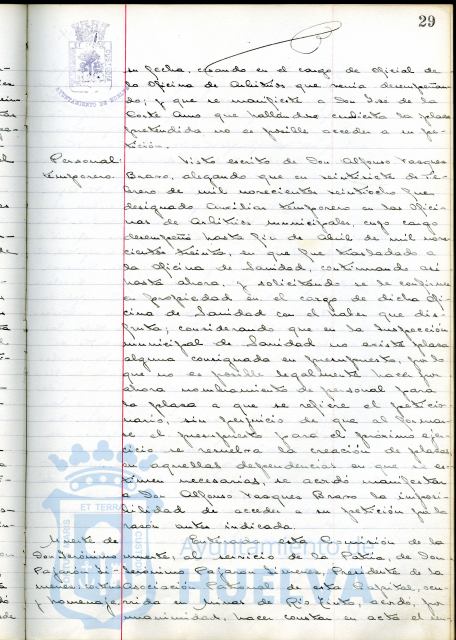 29
AYUNTAMIENTO DE HUELVA
su fecha, cesando en el cargo de Oficial de
la Oficina de Arbitrios que venia desempeñan-
do; y que se manifieste a Don José de la
Corte Amo que hallandose cubierta la plaza
pretendida no es posible acceder a su pe-
tición.
Personal
temporero.
Visto escrito de Don Alfonso Vazquez
Bravo, alegando que en veintisiete de Fe-
brero de mil novecientos veintiocho fue
designado Auxiliar temporero en las Ofici-
nas de Arbitrios municipales, cuyo cargo
desempeñó hasta fin de Abril de mil nove-
cientos treinta, en que fue trasladado a
la Oficina de Sanidad, continuando así
hasta ahora, y solicitando se le confirme
en propiedad en el cargo de dicha Ofi-
cina de Sanidad con el haber que dis-
fruta; considerando que en la Inspección
municipal de Sanidad no existe plaza
alguna consignada en presupuesto, por lo
que no es posible legalmente hacer por
ahora nombramiento de personal para
la plaza a que se refiere el peticio-
nario, sin perjuicio de que al formar-
se el presupuesto para el próximo ejer-
cicio se resuelva la creación de plazas
en aquellas dependencias en que se es-
timen necesarias, se acordó manifestar
a Don Alfonso Vazquez Bravo la imposi-
bilidad de acceder a su petición por la
razón antes indicada.
Muerte de
Don Jerónimo
Pajarón Ji-
menez
y homenaje
Enterada esta Comisión de la
muerte, al servicio de la Patria, de Don
Jerónimo Pajaron Jimenez, Presidente de la
Asociación Patronal de esta Capital, ocu-
rrida en Minas de Rio Tinto, acordó, por
unanimidad, hacer constar en acta el sen-
ET TERRAE
Ayuntamiento de
HUELVA